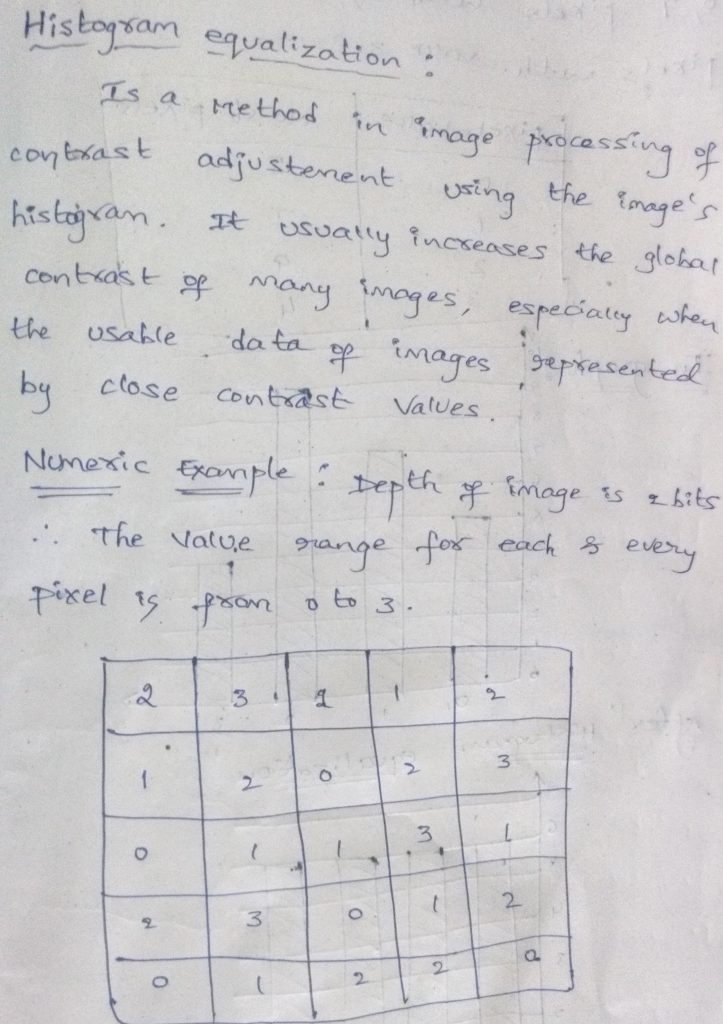 Histogram equalization :
Is a method in image processing of
contrast adjustement using the image's
histogram. It usually increases the global
contrast of many images, especially when
the usable data of images represented
by close contrast values.
Numeric Example : Depth of image is 2 bits
∴ The value range for each & every
pixel is from 0 to 3.
2 3 1 2
1 2 0 2 3
0 1 1 3 1
2 3 0 1 2
0 1 2 2